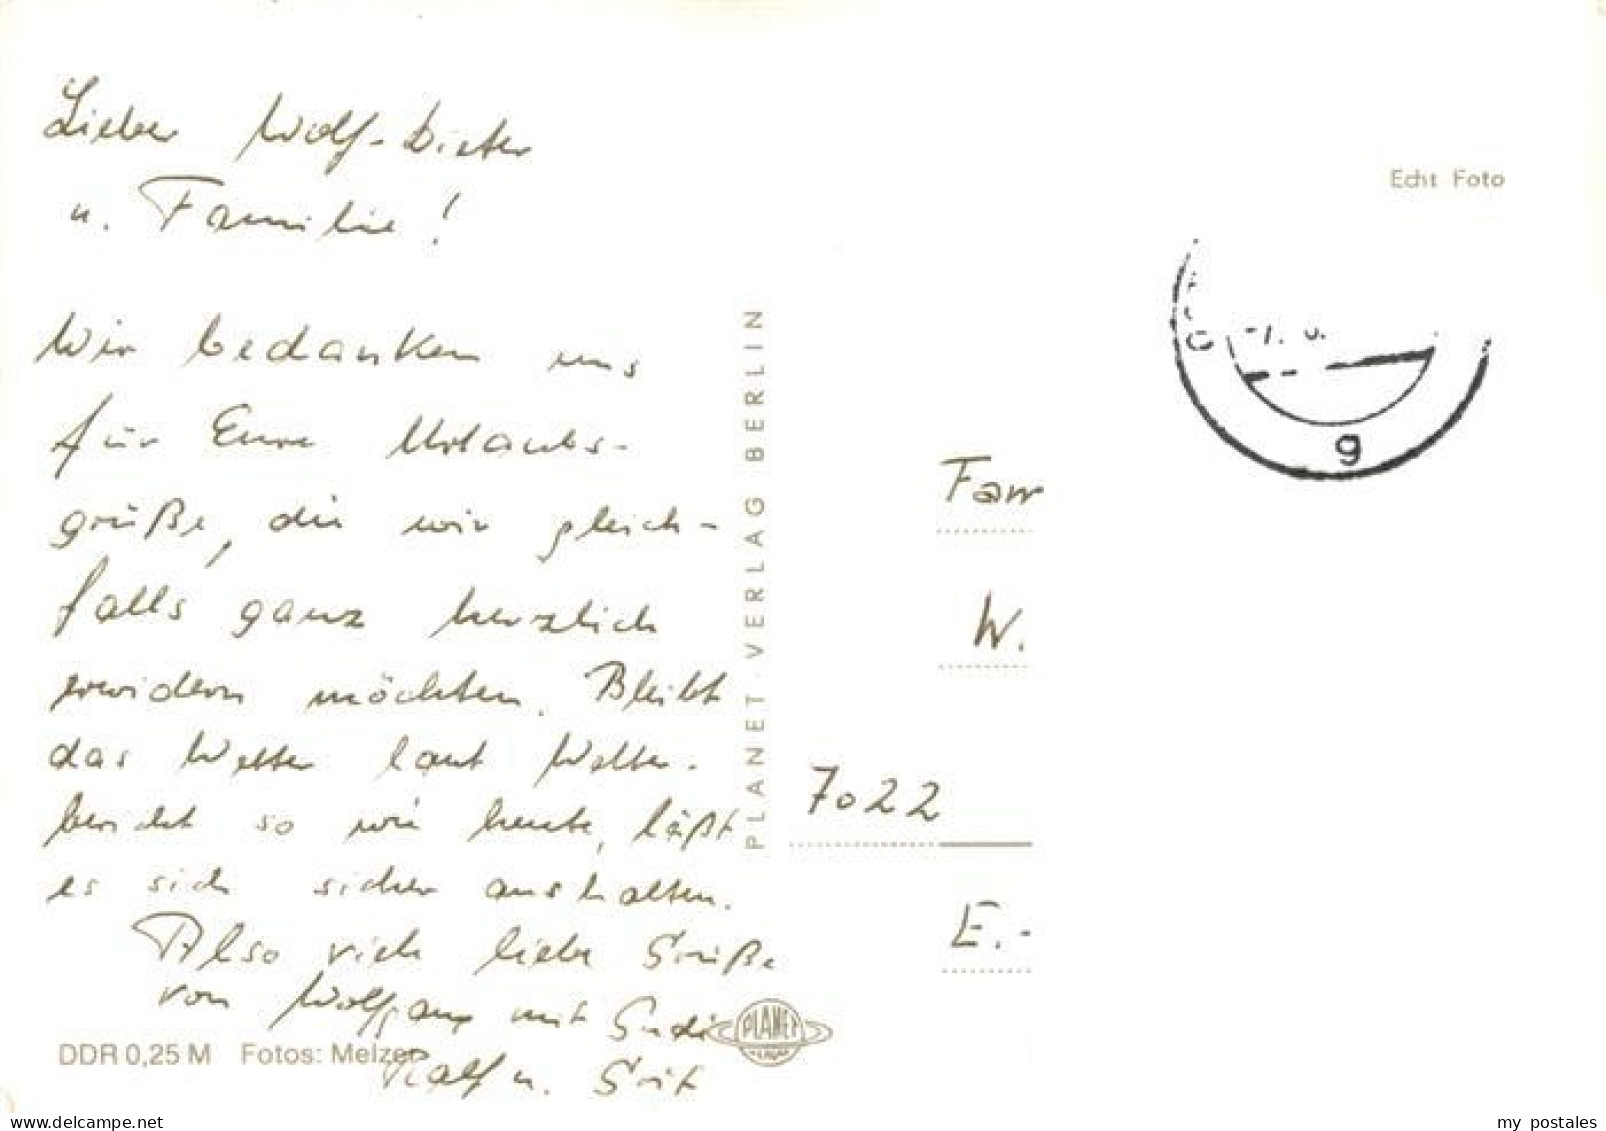 Lieber Wolf-Dieter
u. Familie!
Wir bedanken uns
für Eure Urlaubs-
grüße, die wir gleich-
falls ganz herzlich
erwidern möchten. Bleibt
das Wetter laut Wetter-
bericht so wie heute, läßt
es sich sicher aushalten.
Also viele liebe Grüße
von Wolfgang mit
Ralf u.
DDR 0,25 M Fotos: Melzer
PLANET-VERLAG BERLIN
PLANET
VERLAG
Echt Foto
g
Fam
W.
7022
E.-
delcampe.net
my_postales